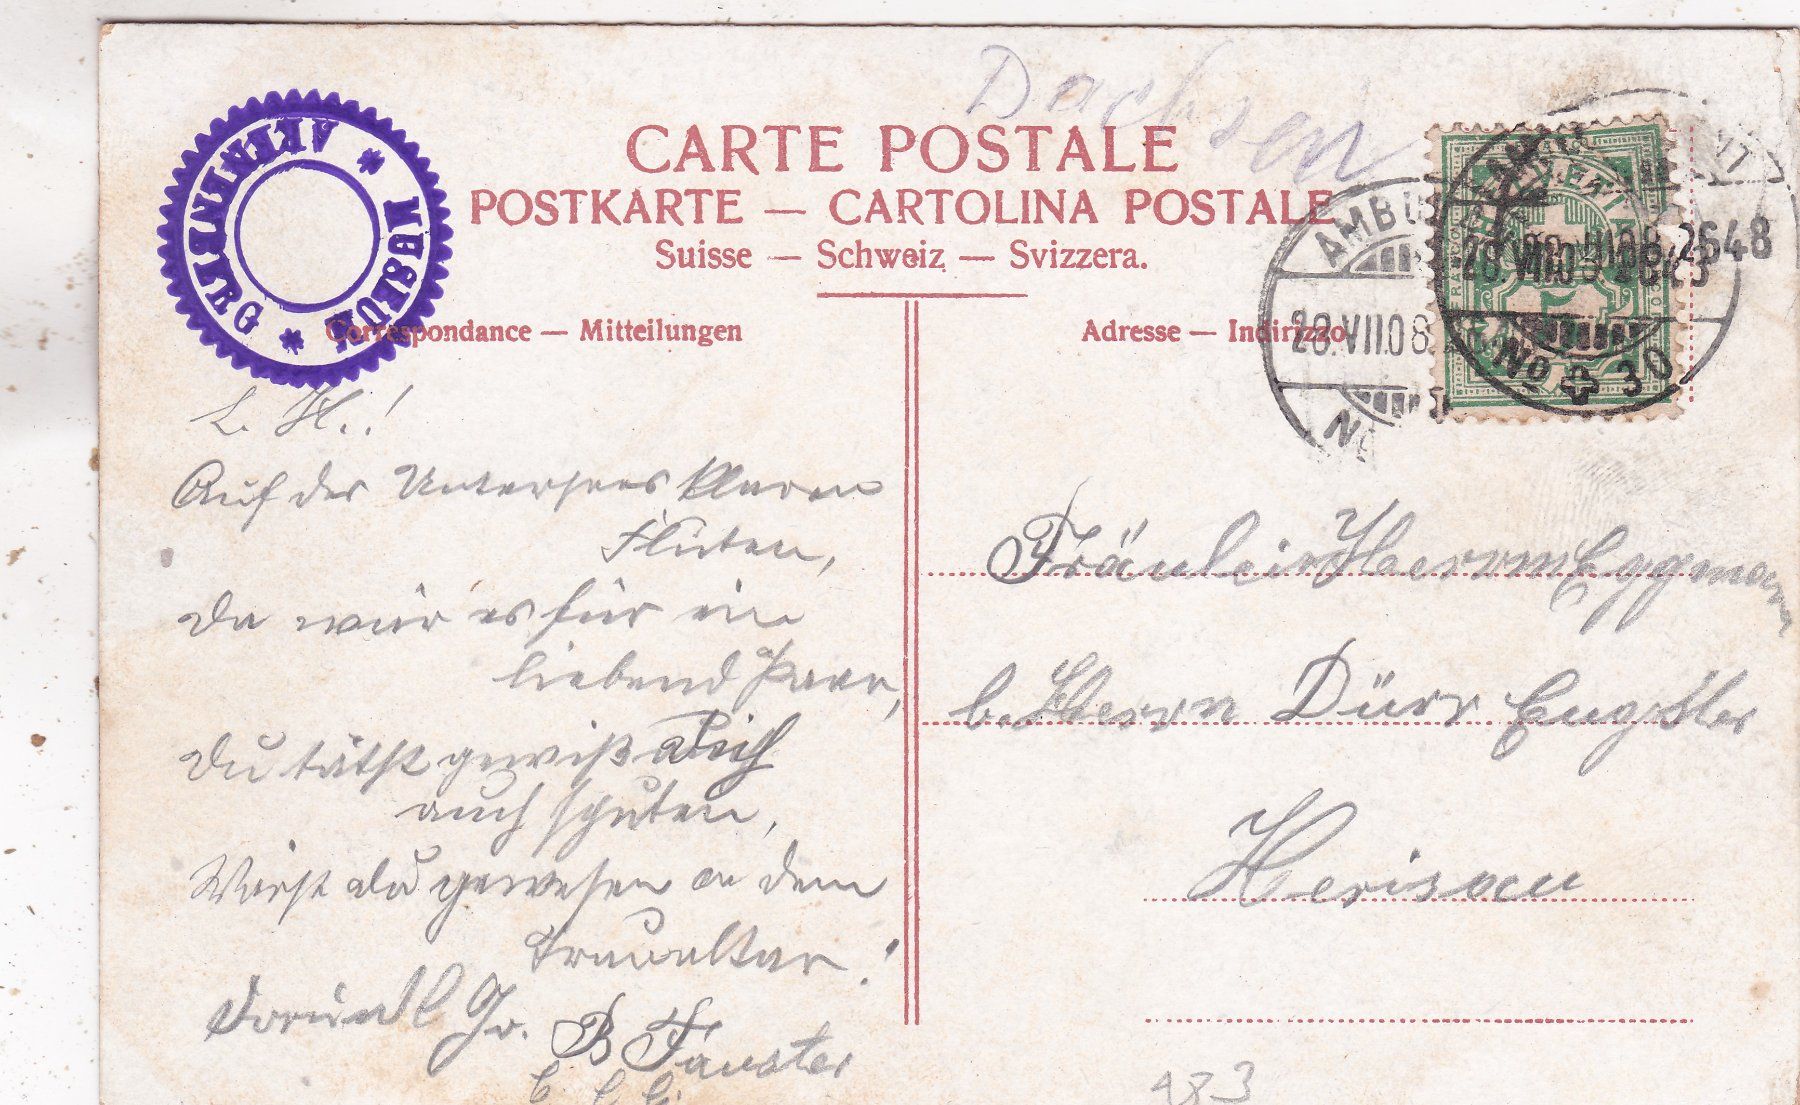 Dachsen
CARTE POSTALE
POSTKARTE — CARTOLINA POSTALE
Suisse — Schweiz — Svizzera.
Correspondance — Mitteilungen
Adresse — Indirizzo
* MUSEUM * ARENENBERG
AMBU
28.VII.08
No 30
2648
L. H.!
Auf des Untersees klaren
Fluten,
Da wär es für ein
liebend Paar,
Du tätst gewiß dich
auch sputen,
Wärst du gewesen a dem
Traualtar!
Freundl Gr.
B
Fräulein Herm Eggmann
b. Herrn Dürr Engster
Herisau
483